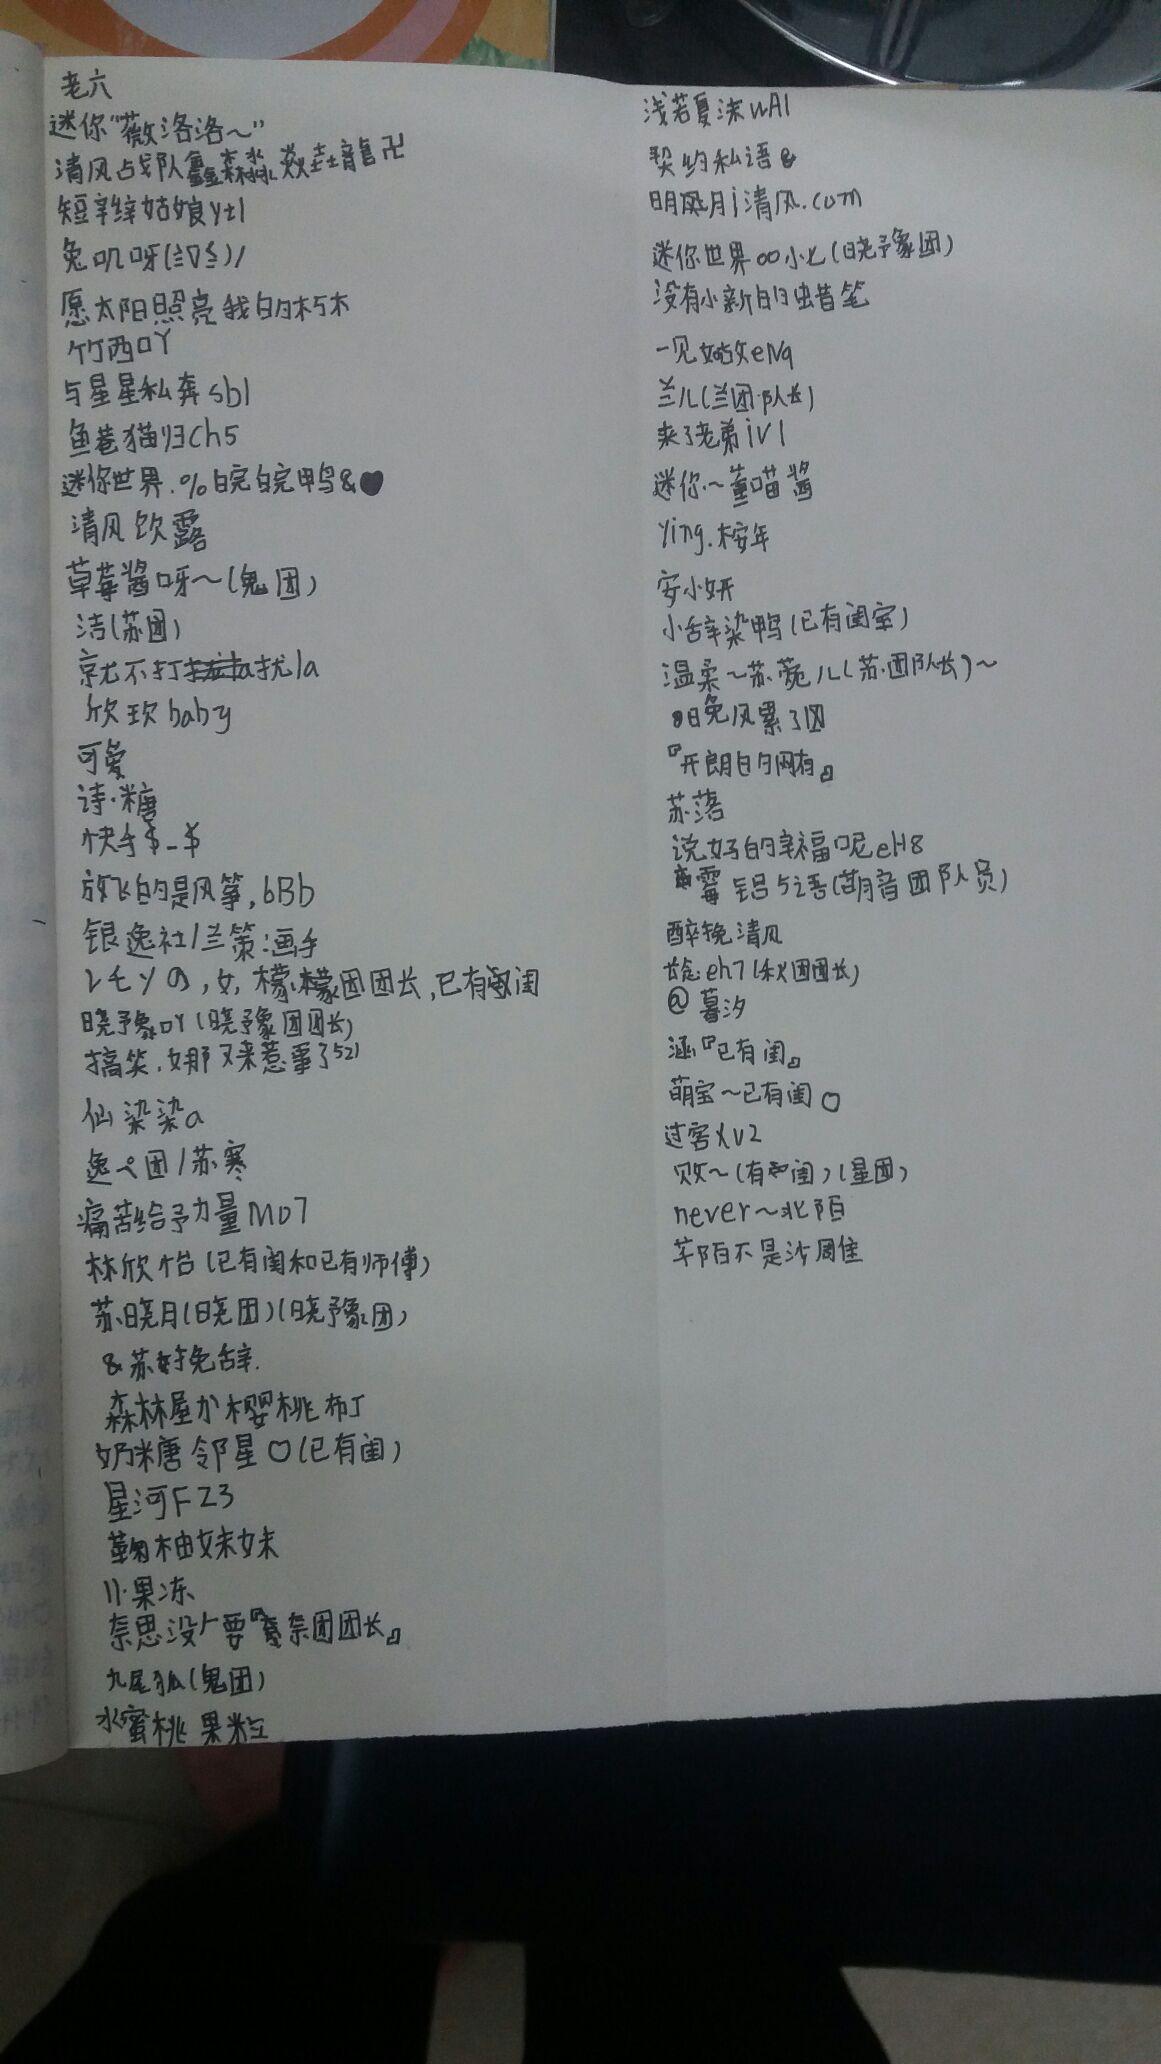 老六
迷你“薇洛洛～”
清风占战队鑫森淼焱垚龍卍
短辛绊姑娘yt1
兔叽呀(≧∇≦)/
愿太阳照亮我的朽木
竹西吖
与星星私奔sb1
鱼巷猫归Ch5
迷你世界.%皖皖鸭&♥
清风饮露
草莓酱呀～(鬼团)
洁(苏团)
就不打扰la
欣玖baby
可爱
诗·糖
快手$-$
放飞的是风筝,6Bb
银逸社/兰策:画手
レモyの,女,檬檬团团长,已有闺
晓予象吖(晓予象团团长)
搞笑.娜又来惹事了521
仙染染a
逸ぺ团/苏寒
痛苦给予力量M07
林欣怡(已有闺和已有师傅)
苏晓月(晓团)(晓予象团)
&苏好挽辞.
森林屋か樱桃布丁
奶糖邻星♡(已有闺)
星河FZ3
鞠柚妹妹
川·果冻
奈思没厂要『奈团团长』
九尾狐(鬼团)
水蜜桃果粒
浅若夏沫uA1
契约私语&
明月i清风.com
迷你世界∞小七(晓予象团)
没有小新的蜡笔
一见如故eNq
兰儿(兰团·队长)
来了老弟iV1
迷你～董喵酱
Ying.桉年
安小妍
小辞染鸭(已有闺室)
温柔～苏菀儿(苏·团队长)～
晚风累了
『开朗的网有』
苏落
说好的幸福呢eH8
霉铝与语(萌音团队员)
醉挽清风
eh7(秋团团长)
@暮汐
涵『已有闺』
萌宝～已有闺♡
过客XV2
败～(有闺)(星团)
never～北陌
芊陌不是沙周佳